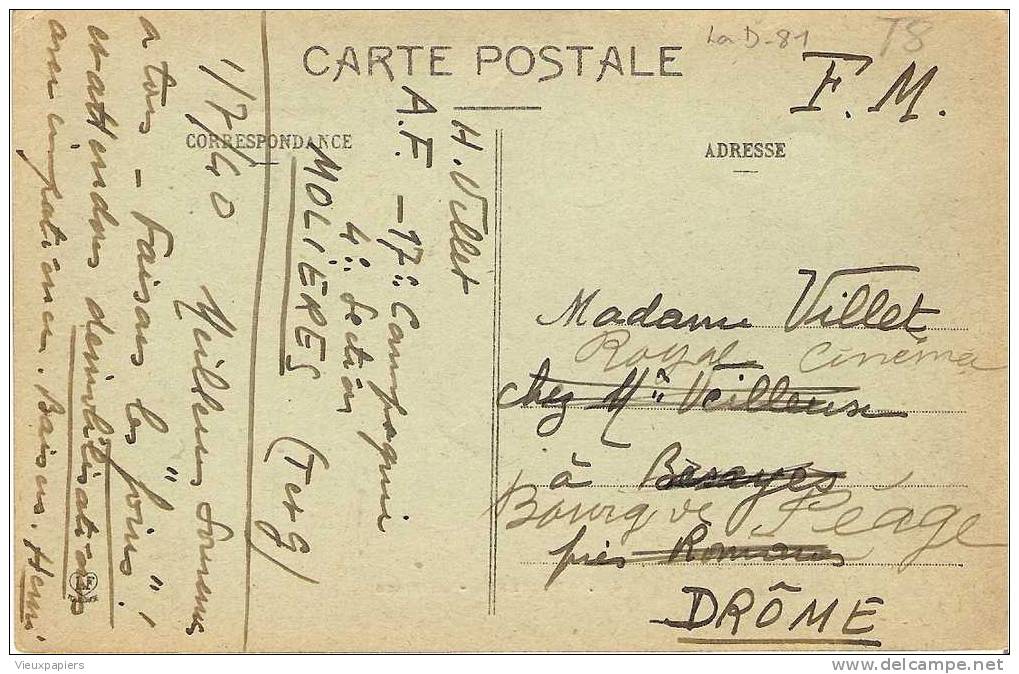 La D-81
T8
CARTE POSTALE
F. M.
CORRESPONDANCE
ADRESSE
H. Villet
A.F. - 17e Compagnie
4e Section
MOLIÈRES (T et G)
1/7/40 Meilleurs Souvenirs
à tous - Faisons les "foins"!
et attendons démobilisation
avec impatience. Baisers. Henri
Madame Villet
Royal Cinéma
chez Mme Veilleux
à Besayes
Bourg de Péage
près Romans
DRÔME
Vieuxpapiers
delcampe.net